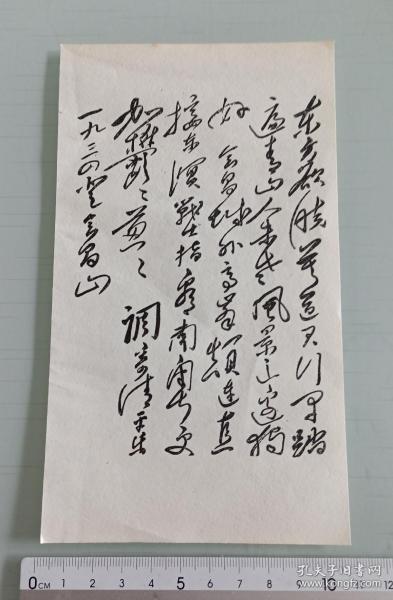 东方欲晓莫道君行早踏
遍青山人未老風景这边独
好会昌城外高峰顛连直
接东溟戰士指看南粤更
加鬱〻葱〻 調寄清平乐
一九三四登会昌山
0CM 1 2 3 4 5 6 7 8 9 10 11
孔夫子旧书网
kongfz.com